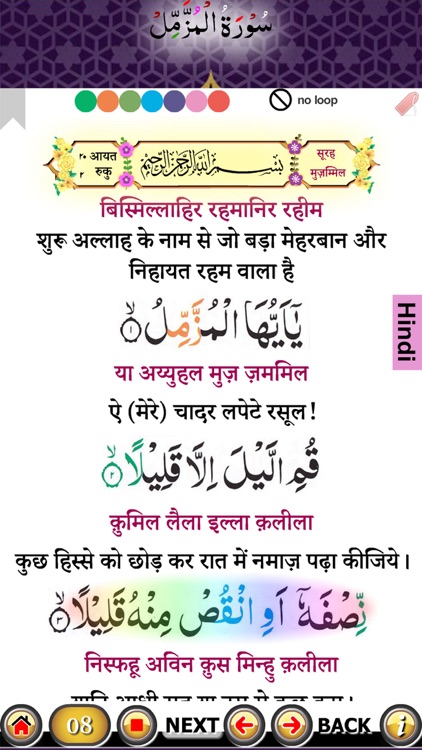 سُوْرَةُ الْمُزَّمِّلْ
no loop
۲۰ आयत
۲ रुकु
بِسْمِ اللهِ الرَّحْمٰنِ الرَّحِيْمِ
सूरह
मुज़म्मिल
बिस्मिल्लाहिर रहमानिर रहीम
शुरू अल्लाह के नाम से जो बड़ा मेहरबान और
निहायत रहम वाला है
Hindi
يٰۤاَيُّهَا الْمُزَّمِّلُ ۙ‏﴿۱﴾
या अय्युहल मुज़ ज़ममिल
ऐ (मेरे) चादर लपेटे रसूल!
قُمِ الَّيْلَ اِلَّا قَلِيْلًا ۙ‏﴿۲﴾
क़ुमिल लैला इल्ला क़लीला
कुछ हिस्से को छोड़ कर रात में नमाज़ पढ़ा कीजिये।
نِّصْفَهٗۤ اَوِ انْقُصْ مِنْهُ قَلِيْلًا ۙ‏﴿۳﴾
निस्फहू अविन क़ुस मिन्हु क़लीला
08 NEXT BACK i